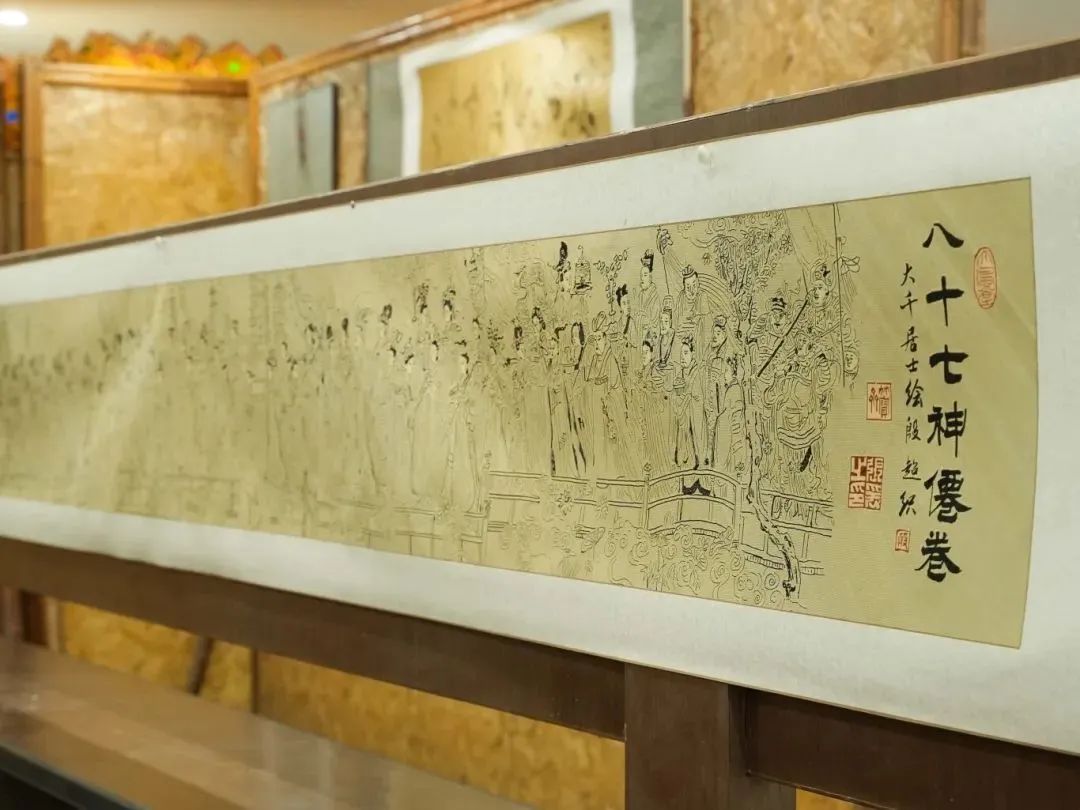 八十七神僊卷
大千居士绘殷超织